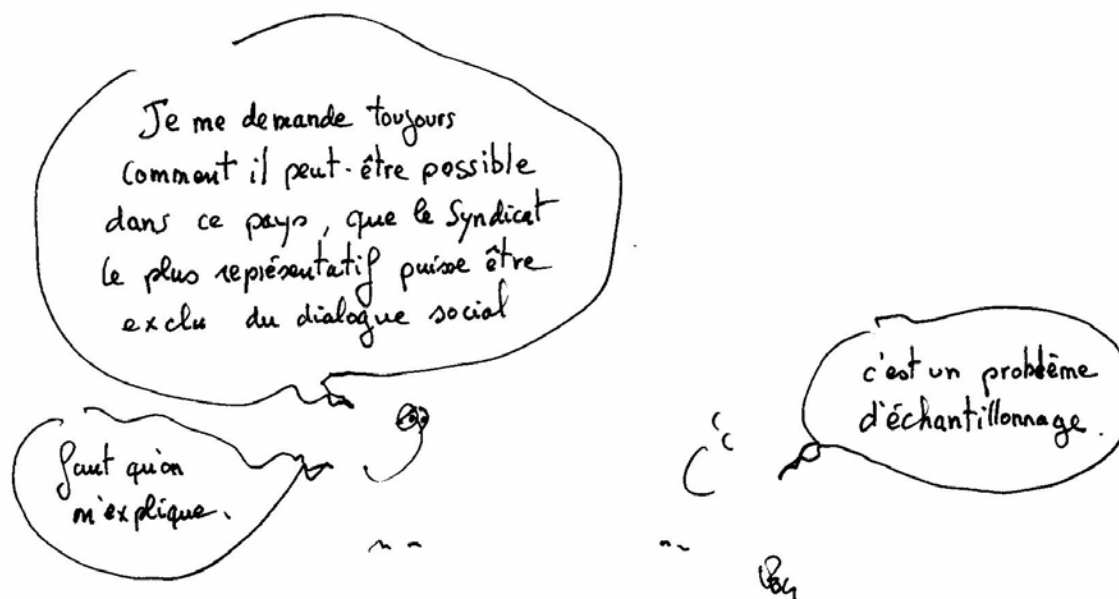 Je me demande toujours
comment il peut-être possible
dans ce pays, que le Syndicat
le plus représentatif puisse être
exclu du dialogue social
faut qu'on
m'explique.
c'est un problème
d'échantillonnage.